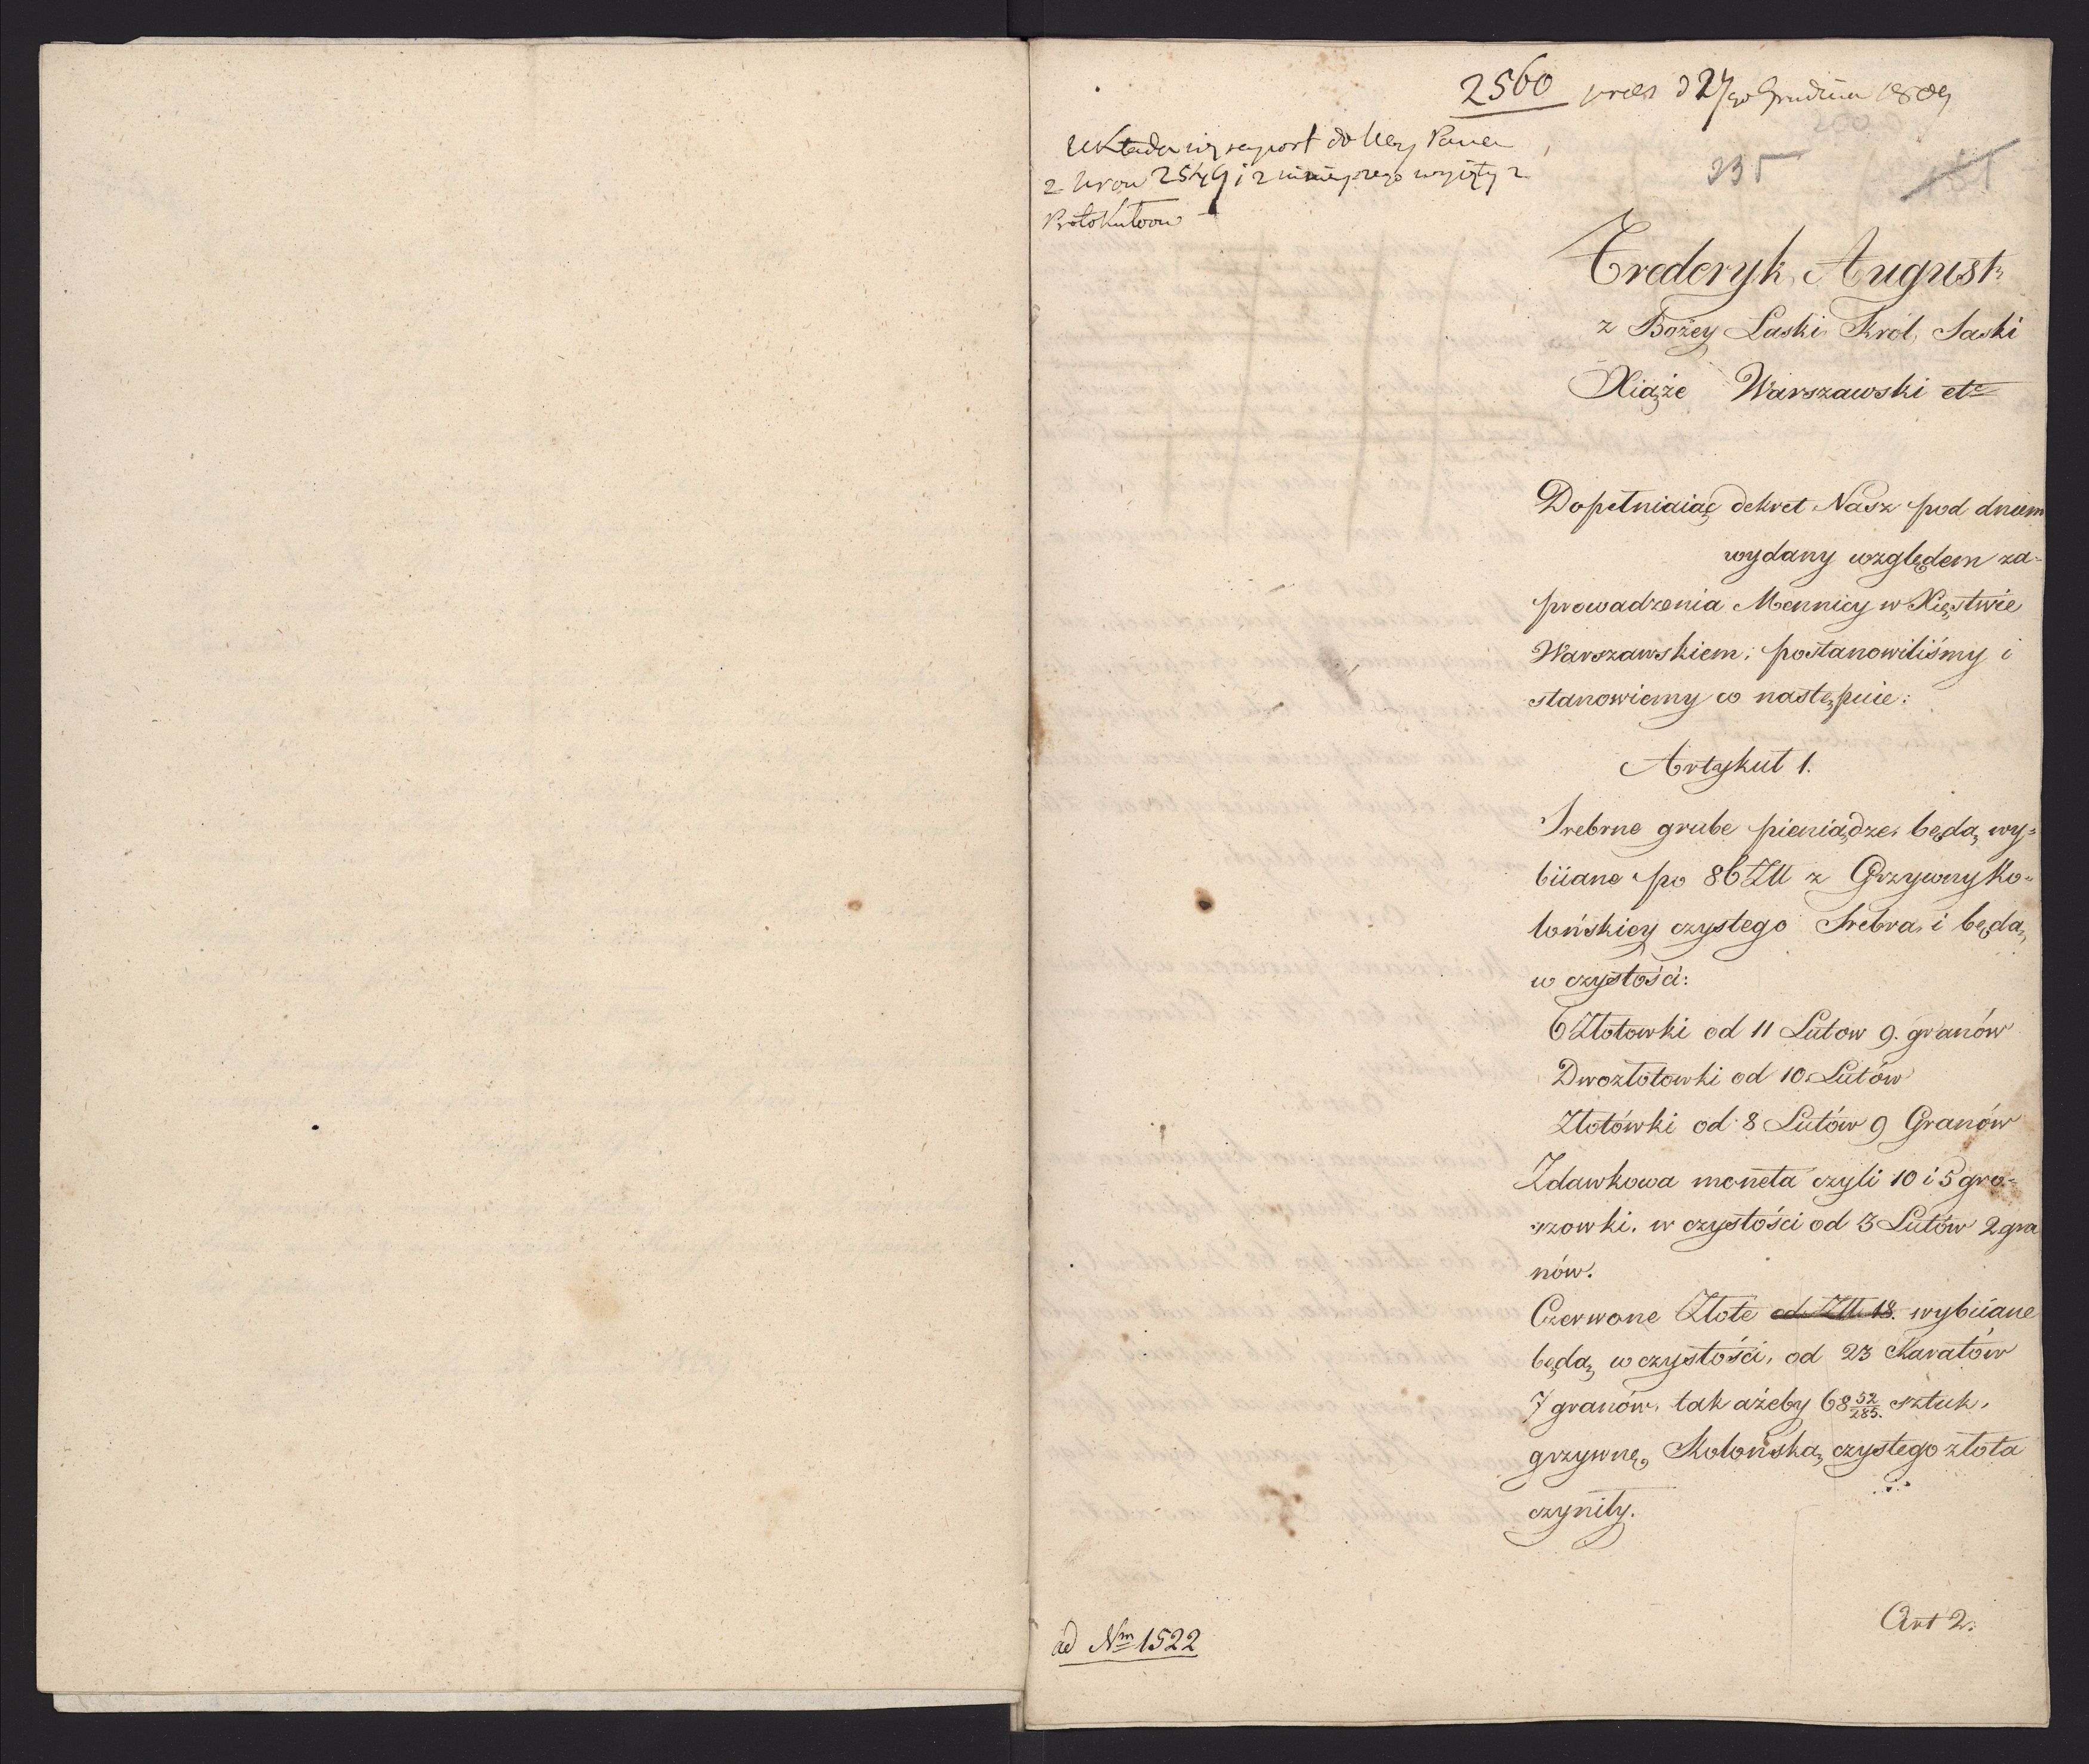 2560 pres d 27go Grudnia 1809
Układa się raport do Nay Pana
z Nrow 2549 i z ninieyszego wyięty z
Protokułow
235
Frederyk August
z Bożey Łaski Król Saski
Xiąże Warszawski etc
Dopełniaiąc dekret Nasz pod dniem
wydany względem za-
prowadzenia Mennicy w Xięstwie
Warszawskiem; postanowiliśmy i
stanowiemy co następuie:
Artykuł 1.
Srebrne grube pieniądze będą wy-
biiane po 86 Złł z Grzywny Ko-
lońskiey czystego Srebra i będą
w czystości:
6 Złotowki od 11 Lutow 9. granów
Dwozłotowki od 10 Lutów
Złotówki od 8 Lutów 9 Granów
Zdawkowa moneta czyli 10 i 5 gro-
szowki. w czystości od 3 Lutów 2 gra
nów.
Czerwone Złote od Złł 18. wybiiane
będą w czystości, od 23 Karatów
7 granów, tak ażeby 68 52/285. sztuk,
grzywnę Kolońską czystego złota
czyniły.
Art 2.
ad Nrm 1522